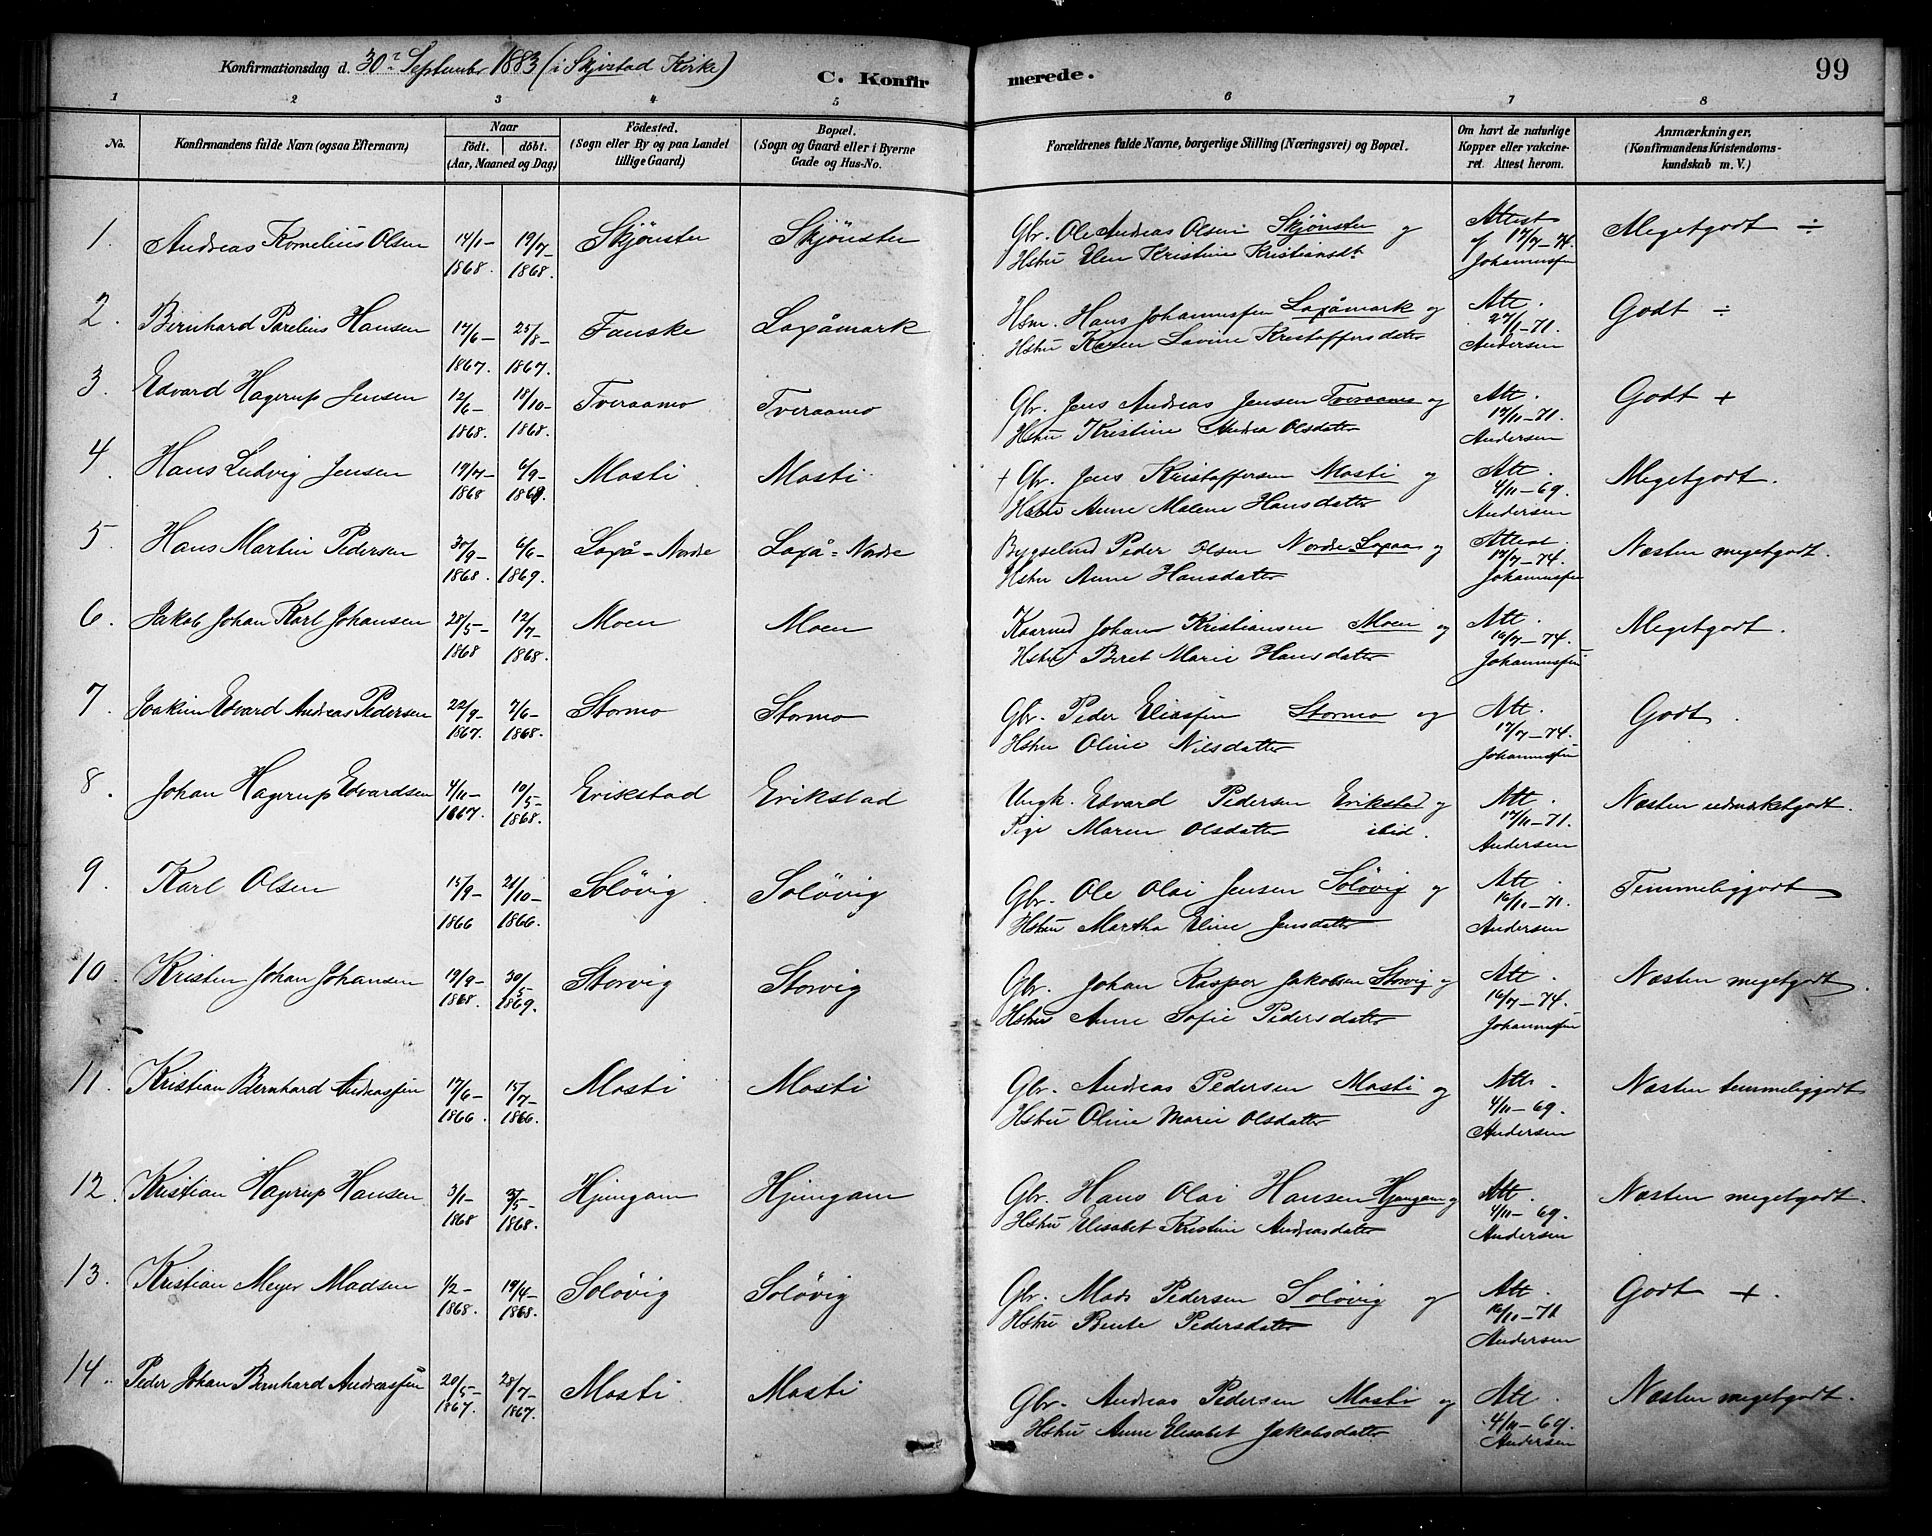 Konfirmationsdag d. 30te September 1883 (i Skjerstad Kirke)
C. Konfir
merede.
99
1 2 3 4 5 6 7 8
No. Konfirmandens fulde Navn (ogsaa Efternavn) Naar födt. döbt. (Aar, Maaned og Dag) Födested. (Sogn eller By og paa Landet tillige Gaard) Bopæl. (Sogn og Gaard eller i Byerne Gade og Hus-No. Forældrenes fulde Navne, borgerlige Stilling (Næringsvei) og Bopæl. Om havt de naturlige Kopper eller vakcineret. Attest herom. Anmærkninger. (Konfirmandens Kristendomskundskab m. V.)
1. Andreas Kornelius Olsen 14/1-1868. 19/7-1868. Skjönster Skjönster Gbr. Ole Andreas Olsen Skjönster og Attest af 17/7-74. Megetgodt ÷
Hstru Elen Kristine Kristiansdt Johannessen
2. Bernhard Parelius Hansen 17/6-1867. 25/8-1867. Fauske Laxåmark Hsm. Hans Johannessen Laxåmark og Att. 27/1-71. Godt ÷
Hstru Karen Lovine Kristoffersdatter Andersen
3. Edvard Hagerup Jensen 12/6-1868. 18/10-1868. Tveraamo Tveraamo Gbr. Jens Andreas Jensen Tveraamo og Att. 17/11-71. Godt +
Hstru Kristine Andrea Olsdatter Andersen
4. Hans Ludvig Jensen 19/7-1868 6/9-1868. Mosti Mosti + Gbr. Jens Kristoffersen Mosti og Att. 4/11-69. Megetgodt.
Hstru Anne Malene Hansdatter Andersen
5. Hans Martin Pedersen 30/9-1868. 6/6-1869. Laxå-Nordre Laxå-Nordre Bygselmd Peder Olsen Nordre Laxaa og Attest 17/7-74. Næsten megetgodt.
Hstru Anne Hansdatter Johannessen
6. Jakob Johan Karl Johansen 28/5-1868 12/7-1868. Moen Moen Kaarmd Johan Kristiansen Moen og Att. 16/7-74. Megetgodt.
Hstru Beret Marie Hansdatter Johannessen
7. Joakim Edvard Andreas Pedersen 22/9-1867. 7/6-1868. Stormo Stormo Gbr. Peder Eliassen Stormo og Att. 17/7-74. Godt.
Hstru Oline Nilsdatter Johannessen
8. Johan Hagerup Edvardsen 4/11-1867. 10/5-1868. Erikstad Erikstad Ungk. Edvard Pedersen Erikstad og Att. 17/11-71. Næsten udmærketgodt.
Pige Maren Olsdatter ibid. Andersen
9. Karl Olsen 15/9-1866 28/10-1866. Solövig Solövig Gbr. Ole Olai Jensen Solövig og Att. 16/11-71. Temmeliggodt
Hstru Martha Eline Jensdatter Andersen
10. Kristen Johan Johansen 19/9-1868. 30/5-1869. Storvig Storvig Gbr. Johan Kaspar Jakobsen Storvig og Att. 16/7-74. Næsten megetgodt.
Hstru Anne Sofie Pedersdatter Johannessen
11. Kristian Bernhard Andreassen 17/6-1866 15/7-1866. Mosti Mosti Gbr. Andreas Pedersen Mosti og Att. 4/11-69. Næsten temmeliggodt
Hstru Oline Marie Olsdatter Andersen
12. Kristian Hagerup Hansen 3/1-1868 3/5-1868. Hjemgam Hjemgam Gbr. Hans Olai Hansen Hjemgam og Att. 4/11-69. Næsten megetgodt.
Hstru Elisabet Kristine Andreasdatter Andersen
13. Kristian Meyer Madsen 1/2-1868. 19/4-1868. Solövig Solövig Gbr. Mads Pedersen Solövig og Att. 16/11-71 Godt +.
Hstru Bente Pedersdatter Andersen
14. Peder Johan Bernhard Andreassen 20/5-1867. 28/7-1867. Mosti Mosti Gbr. Andreas Pedersen Mosti og Att. 4/11-69. Næsten megetgodt.
Hstru Anne Elisabet Jakobsdatter Andersen